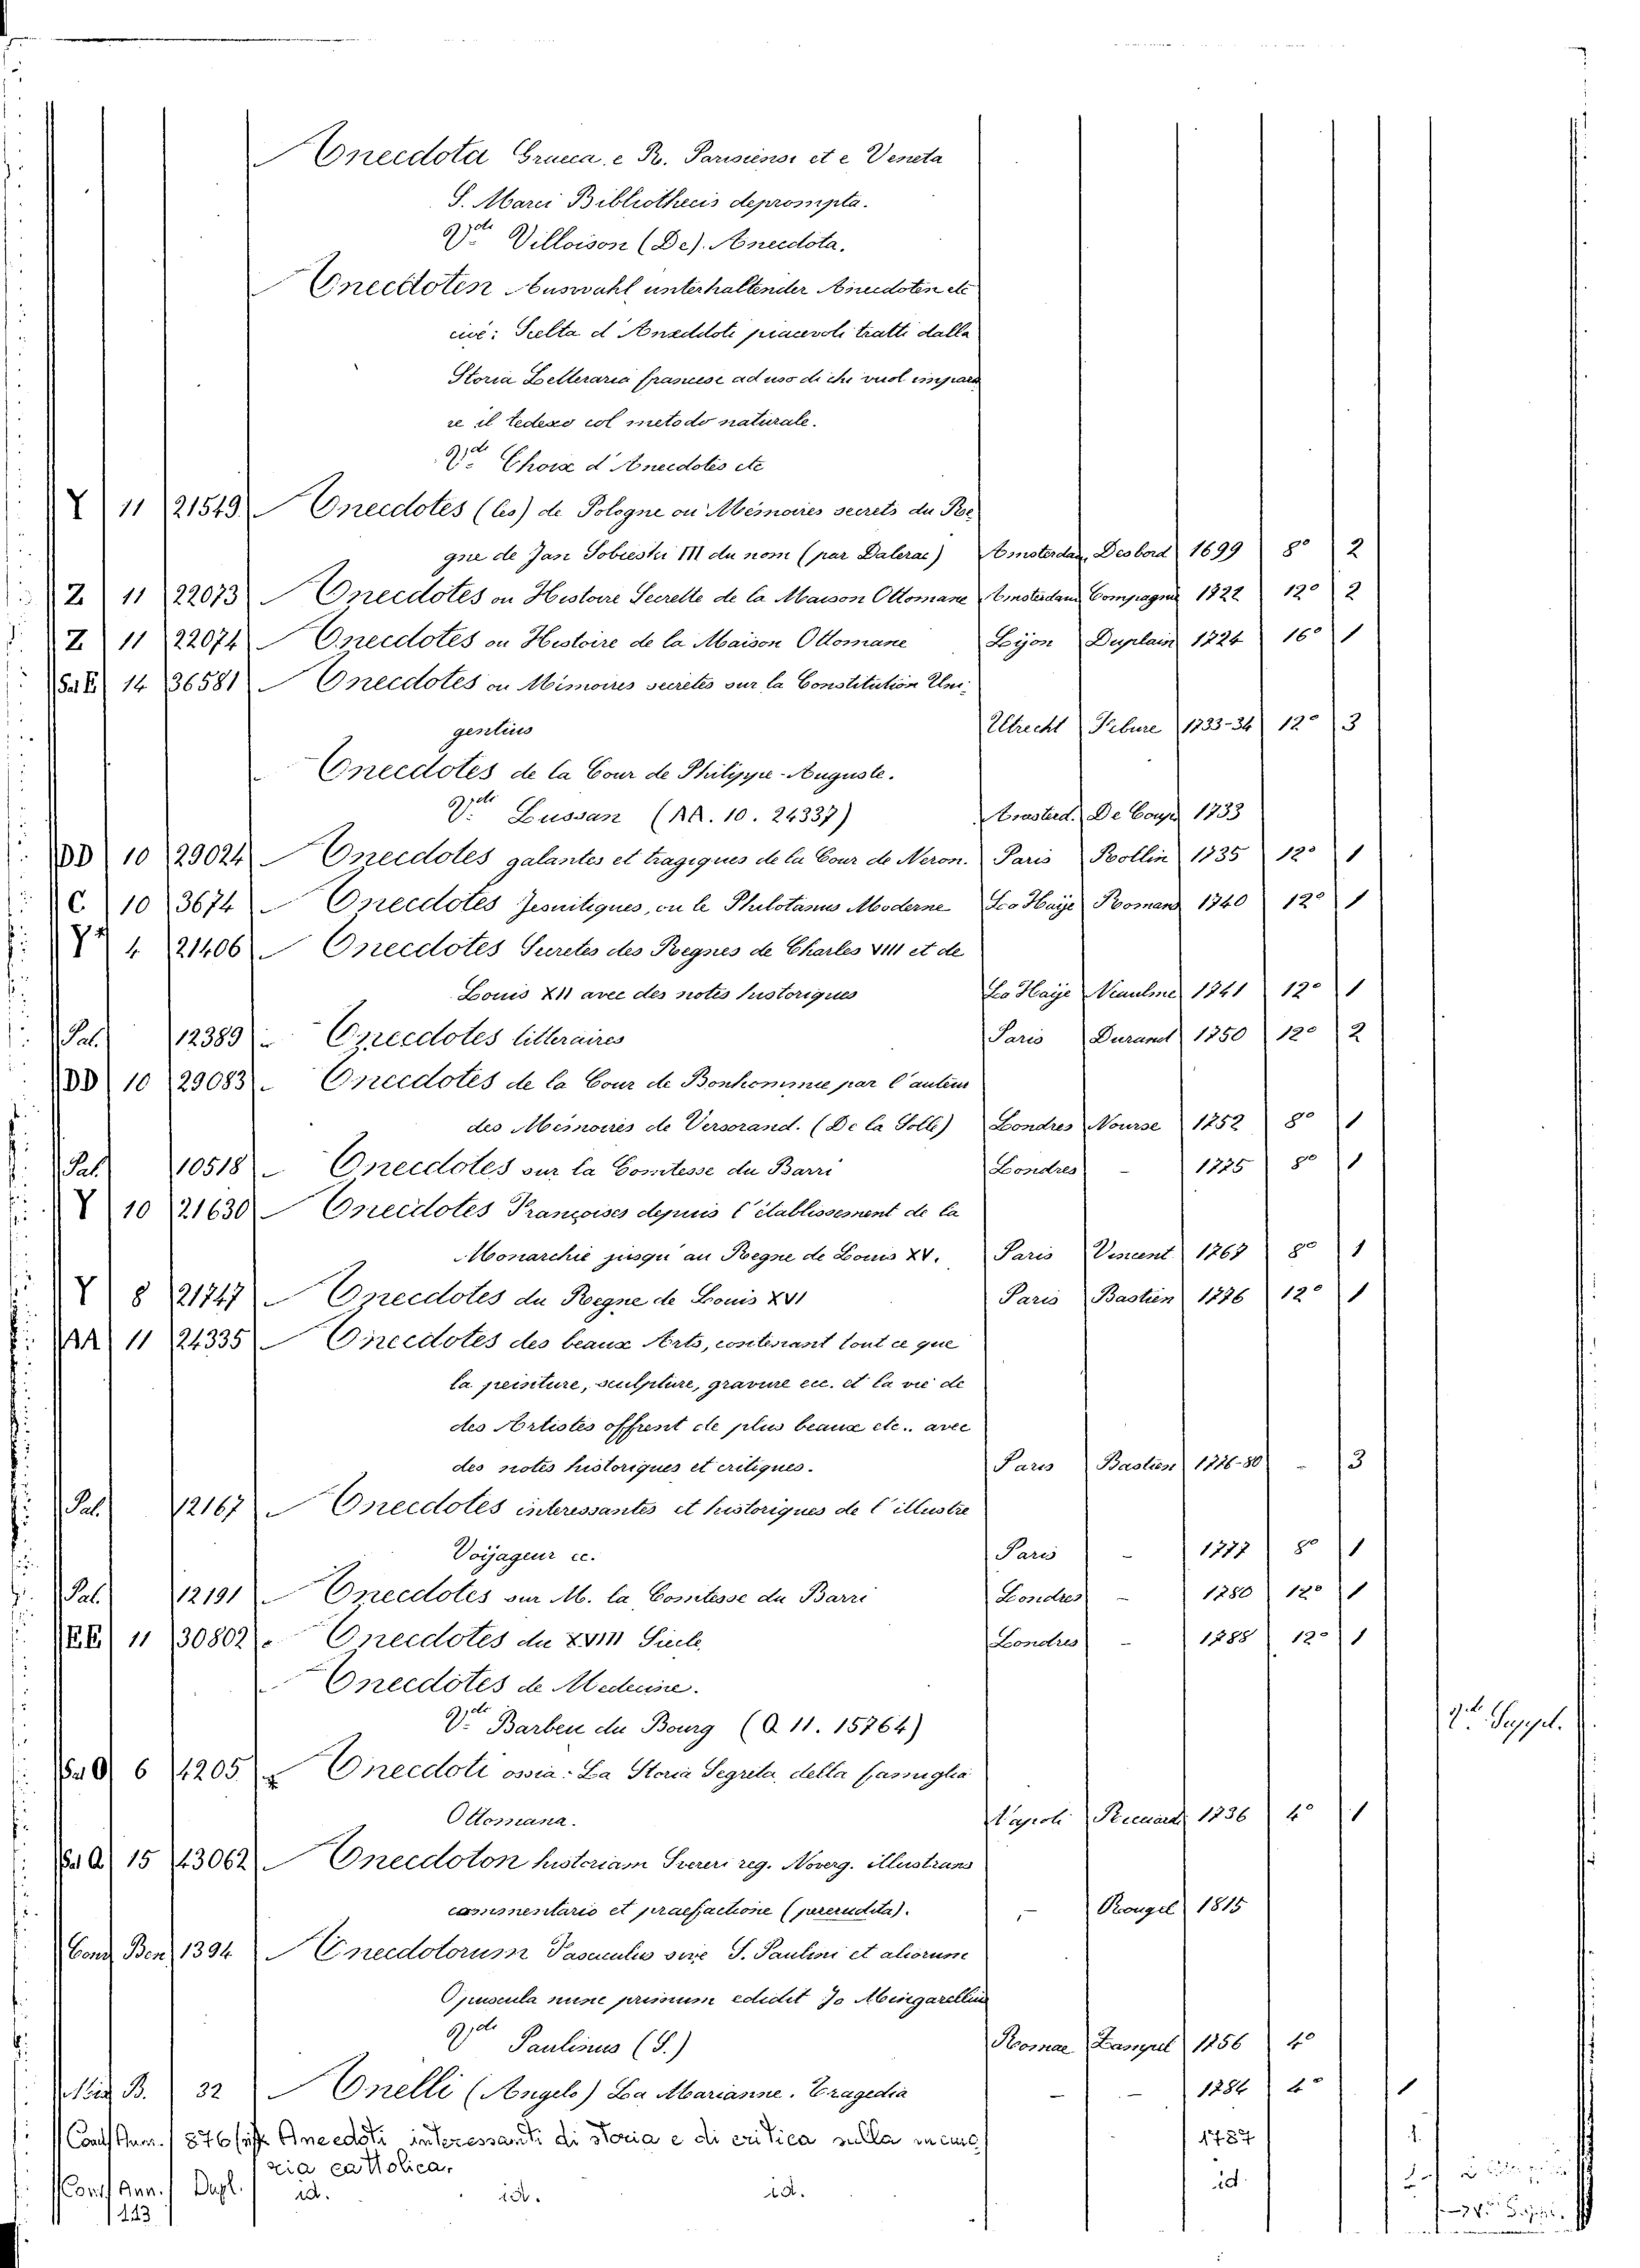 Anecdota Graeca, e R. Parisiensi et e Veneta
S. Marci Bibliothecis deprompta.
V.de Villoison (De). Anecdota.
Anecdoten Auswahl unterhaltender Anecdoten etc
cioè: Scelta d'Aneddoti piacevoli tratti dalla
Storia Letteraria francese ad uso di chi vuol impara
re il tedesco col metodo naturale.
V.de Choix d'Anecdotes etc
Y 11 21549 Anecdotes (les) de Pologne ou Mémoires secrets du Re
gne de Jan Sobieski III du nom (par Dalerac) Amsterdam Desbord 1699 8° 2
Z 11 22073 Anecdotes ou Histoire Secrette de la Maison Ottomane Amsterdam Compagnie 1722 12° 2
Z 11 22074 Anecdotes ou Histoire de la Maison Ottomane Lyon Duplain 1724 16° 1
Sal E 14 36581 Anecdotes ou Mémoires secretes sur la Constitution Uni
genitus Utrecht Febure 1733-34 12° 3
Anecdotes de la Cour de Philippe-Auguste.
V.de Lussan (AA. 10. 24337) Amsterd. De Coup 1733
DD 10 29024 Anecdotes galantes et tragiques de la Cour de Neron. Paris Rollin 1735 12° 1
C 10 3674 Anecdotes Jesuitiques, ou le Philotanus Moderne La Haye Romans 1740 12° 1
4 21406 Anecdotes Secretes des Regnes de Charles VIII et de
Louis XII avec des notes historiques La Haye Neaulme 1741 12° 1
Pal. 12389 Anecdotes litteraires Paris Durand 1750 12° 2
DD 10 29083 Anecdotes de la Cour de Bonhommie par l'auteur
des Memoires de Versorand. (De la Solle) Londres Nourse 1752 8° 1
Pal. 10518 Anecdotes sur la Comtesse du Barri Londres - 1775 8° 1
Y 10 21630 Anecdotes Françoises depuis l'établissement de la
Monarchie jusqu'au Regne de Louis XV. Paris Vincent 1767 8° 1
Y 8 21747 Anecdotes du Regne de Louis XVI Paris Bastien 1776 12° 1
AA 11 24335 Anecdotes des beaux Arts, contenant tout ce que
la peinture, sculpture, gravure ecc. et la vie de
des Artistes offrent de plus beaux etc.. avec
des notes historiques et critiques. Paris Bastien 1776-80 - 3
Pal. 12167 Anecdotes interessantes et historiques de l'illustre
Voyageur ec. Paris - 1777 8° 1
Pal. 12191 Anecdotes sur M. la Comtesse du Barri Londres - 1780 12° 1
EE 11 30802 Anecdotes du XVIII Siecle Londres - 1788 12° 1
Anecdotes de Medecine.
V.de Barbeu du Bourg (Q 11. 15764) V.de Suppl.
6 4205 Anecdoti ossia: La Storia Segreta, della famiglia
Ottomana. Napoli Ricciardi 1736 4° 1
Sal Q 15 43062 Anecdoton historiam Svereri reg. Noverg. illustrans
commentario et praefactione (pererudita). - Rongel 1815
Conv Ben 1394 Anecdotorum Fasciculus sive S. Paulini et aliorum
Opuscula nunc primum edidit Jo Mingarellius
V.de Paulinus (S.) Romae Zampel 1756 4°
B. 32 Anelli (Angelo) La Marianne. Tragedia - - 1784 4° 1
Conv Ann. 876 Anecdoti interessanti di storia e di critica sulla
zia cattolica. 1787 1
Conv Ann. Dupl. id. id. id. id.
113